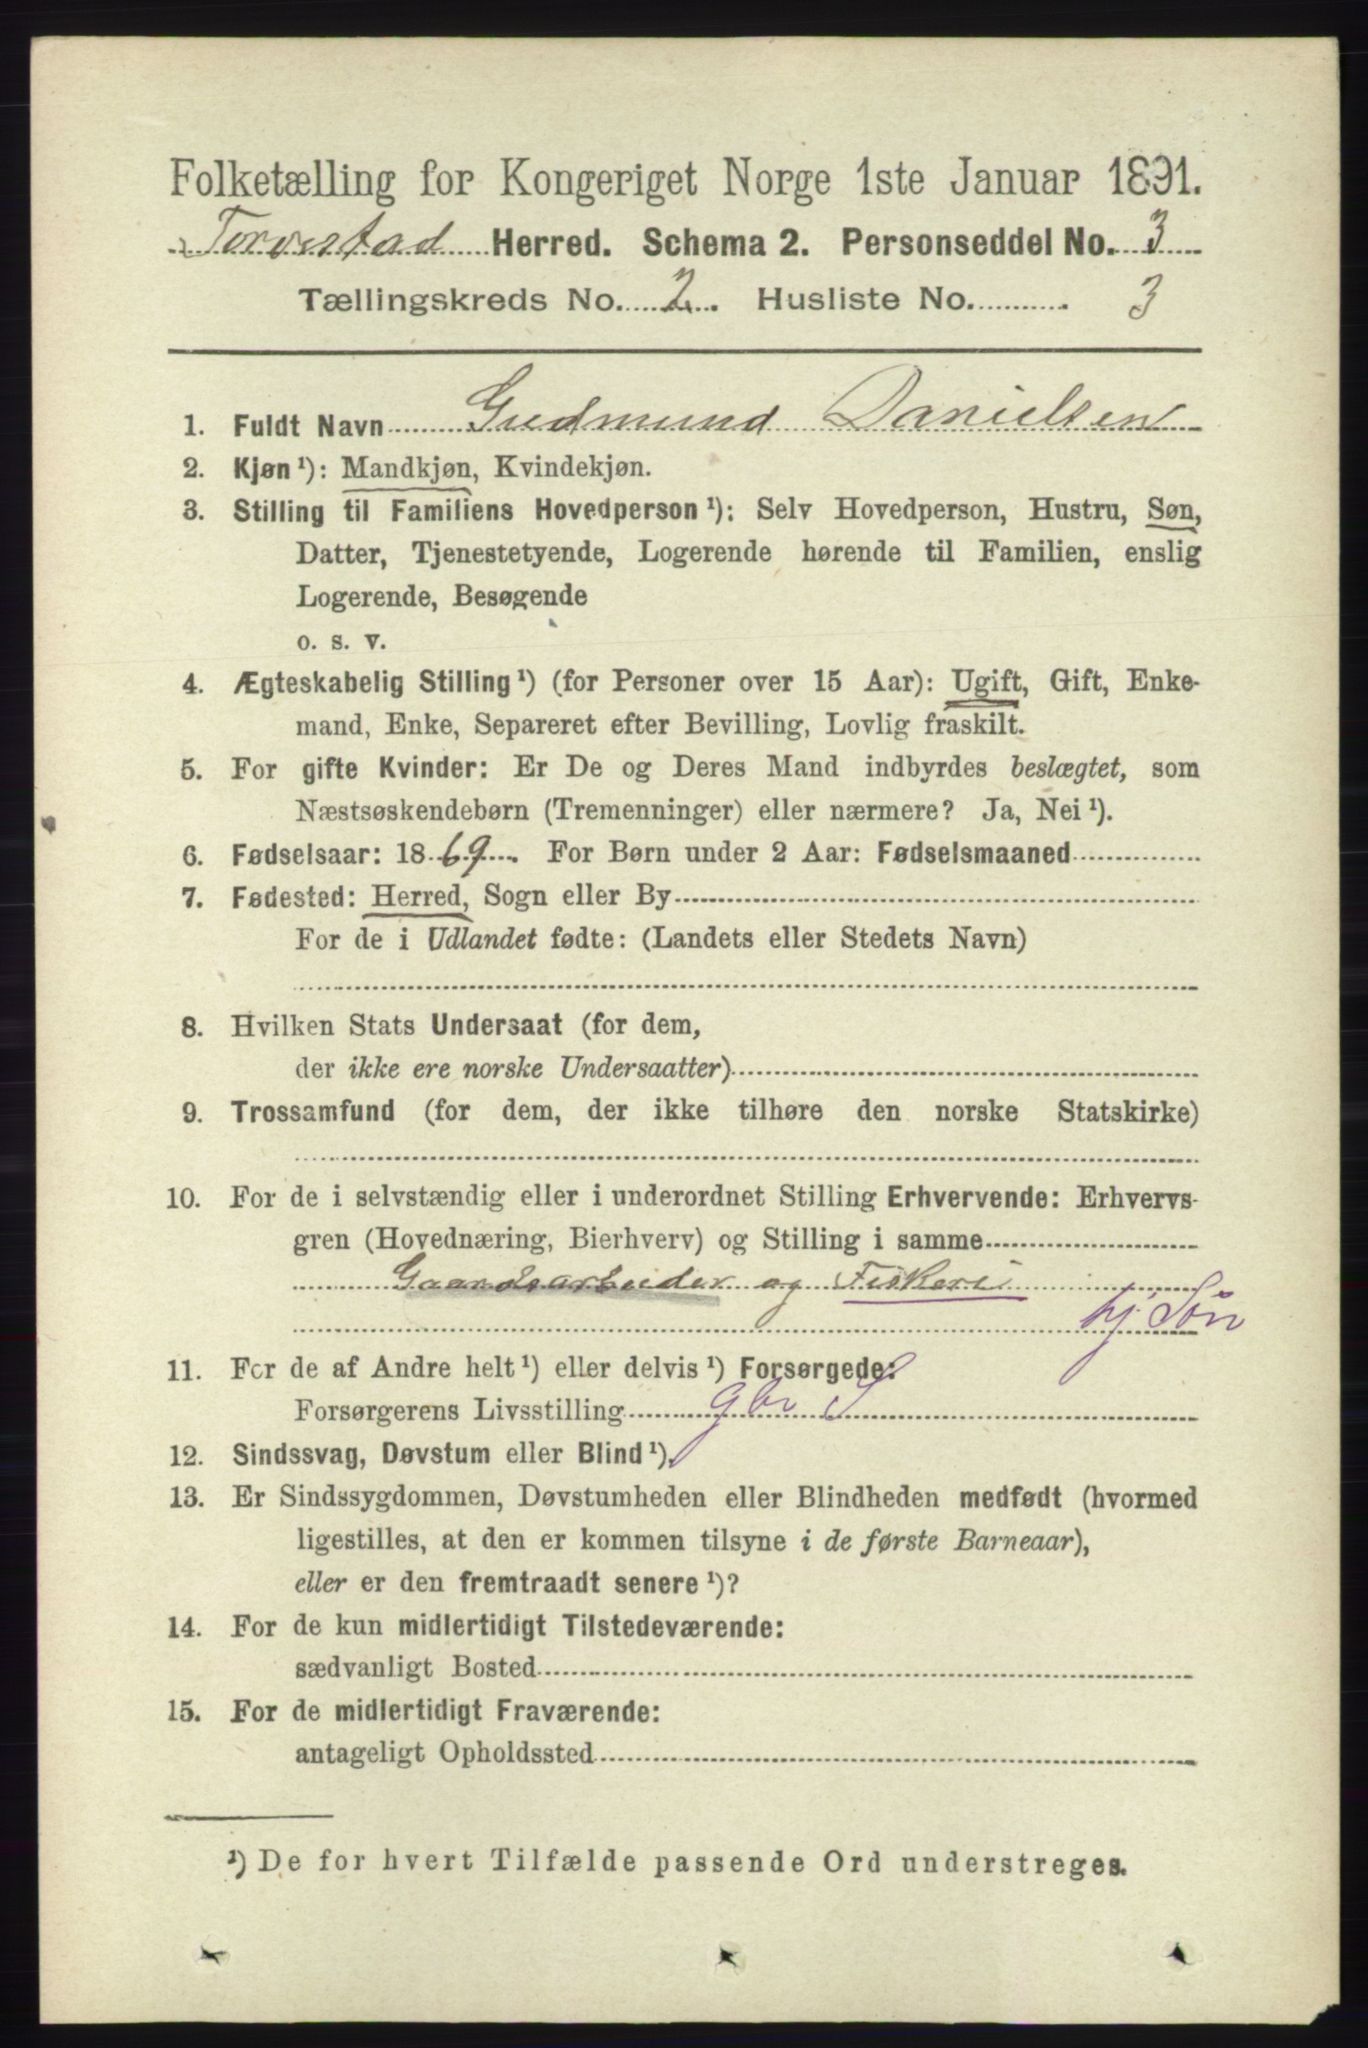 Folketælling for Kongeriget Norge 1ste Januar 1891.
Torvestad Herred. Schema 2. Personseddel No. 3
Tællingskreds No. 2. Husliste No. 3
1. Fuldt Navn Gudmund Danielsen
2. Kjøn ¹): Mandkjøn, Kvindekjøn.
3. Stilling til Familiens Hovedperson ¹): Selv Hovedperson, Hustru, Søn,
Datter, Tjenestetyende, Logerende hørende til Familien, enslig
Logerende, Besøgende
o. s. v.
4. Ægteskabelig Stilling ¹) (for Personer over 15 Aar): Ugift, Gift, Enke-
mand, Enke, Separeret efter Bevilling, Lovlig fraskilt.
5. For gifte Kvinder: Er De og Deres Mand indbyrdes beslægtet, som
Næstsøskendebørn (Tremenninger) eller nærmere? Ja, Nei ¹).
6. Fødselsaar: 1869. For Børn under 2 Aar: Fødselsmaaned
7. Fødested: Herred, Sogn eller By
For de i Udlandet fødte: (Landets eller Stedets Navn)
8. Hvilken Stats Undersaat (for dem,
der ikke ere norske Undersaatter)
9. Trossamfund (for dem, der ikke tilhøre den norske Statskirke)
10. For de i selvstændig eller i underordnet Stilling Erhvervende: Erhvervs-
gren (Hovednæring, Bierhverv) og Stilling i samme
Gaardsarbeider og Fiskeri
hj. Søn
11. For de af Andre helt ¹) eller delvis ¹) Forsørgede:
Forsørgerens Livsstilling gbr S
12. Sindssvag, Døvstum eller Blind ¹).
13. Er Sindssygdommen, Døvstumheden eller Blindheden medfødt (hvormed
ligestilles, at den er kommen tilsyne i de første Barneaar),
eller er den fremtraadt senere ¹)?
14. For de kun midlertidigt Tilstedeværende:
sædvanligt Bosted
15. For de midlertidigt Fraværende:
antageligt Opholdssted
¹) De for hvert Tilfælde passende Ord understreges.